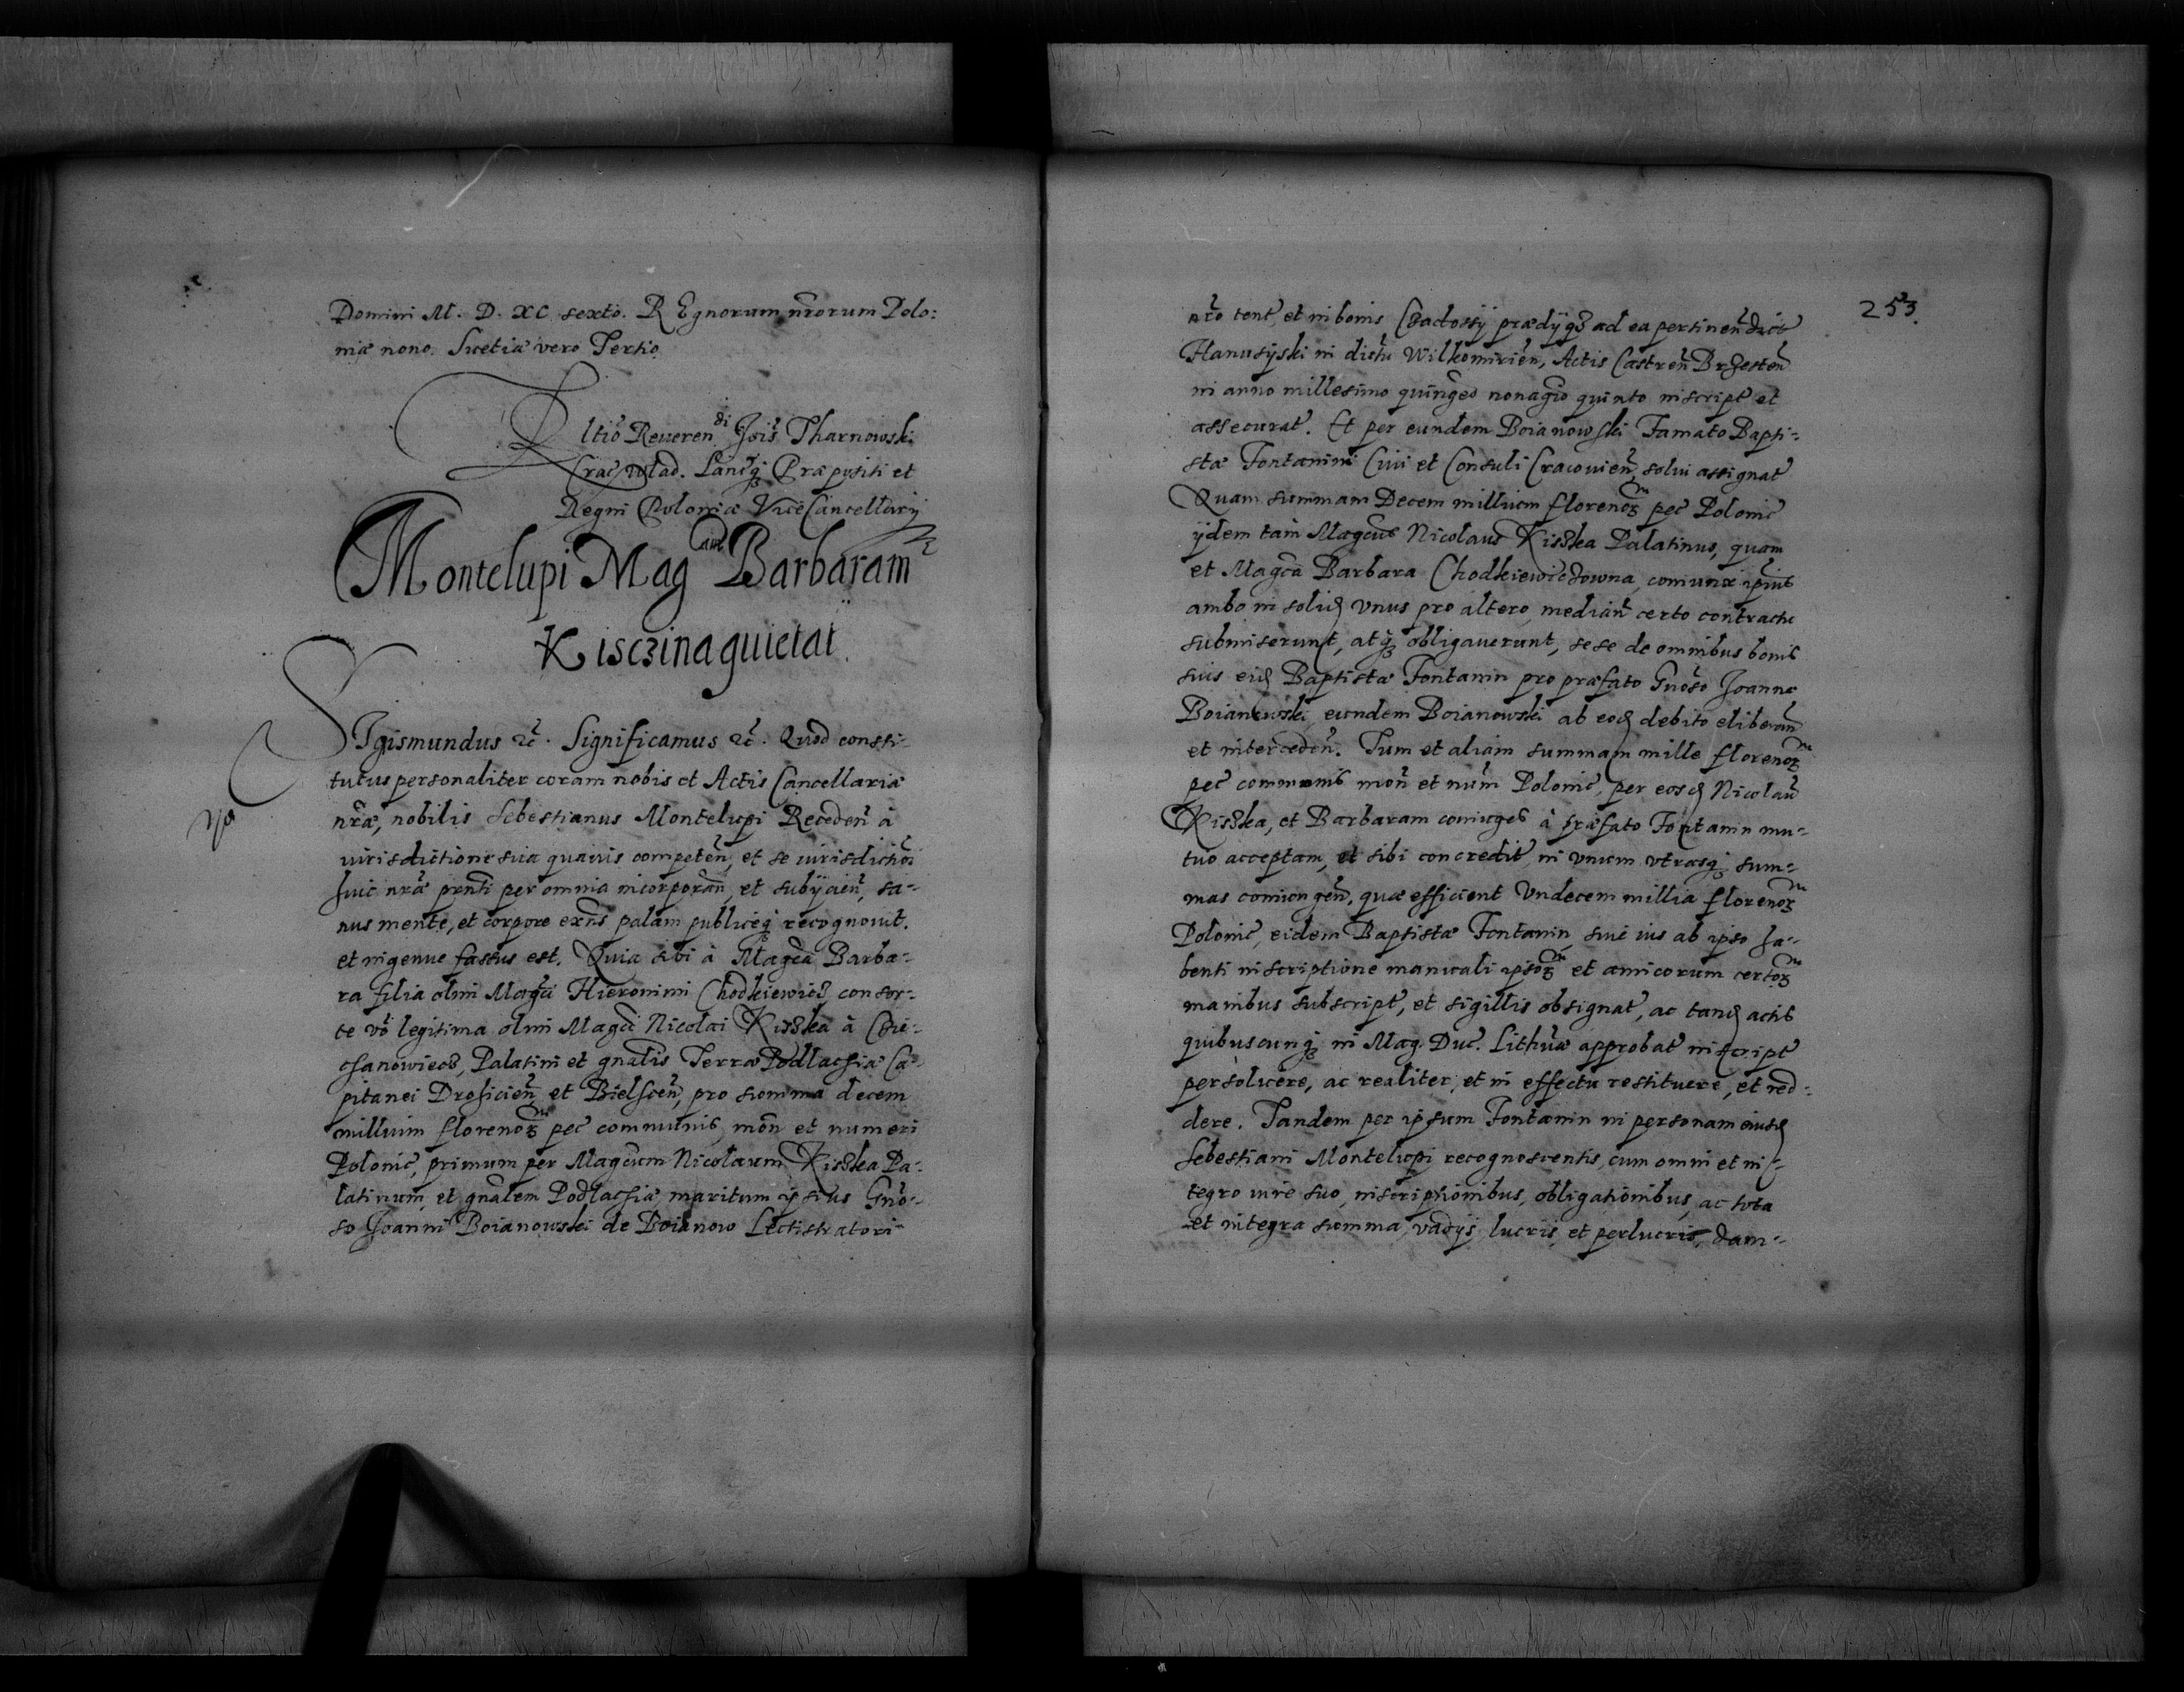 Domini M. D. XC sexto. REgnorum nrorum Polo:
niæ nono. Suetiæ vero Tertio
Rltio Reveren di Jois Tharnowski
Crac Wlad. Lancq Præpositi et
Regni Poloniæ ViceCancellarij
Montelupi Mag cam Barbaram
Kisczina quietat
SIgismundus etc. Significamus etc. Quod consti-
tutus personaliter coram nobis et Actis Cancellariæ
nræ, nobilis Sebestianus Montelupi Receden à
iurisdictione sua quavis competen, et se iurisdictioni
huic nræ prnti per omnia incorporan, et subijcien, sa-
nus mente, et corpore exns palam publiceq recognovit.
et ingenue fassus est. Quia sibi à Magca Barba-
ra filia olim Magci Hieronimi Chodkiewicz consor-
te vo legitima olim Magci Nicolai Kisska à Cie-
chanowiecz, Palatini et gnalis Terræ Podlachiæ Ca-
pitanei Drohicien, et Bielscen, pro summa decem
millium florenor pec communis, mon et numeri
Polonic, primum per Magcum Nicolaum Kisska Pa-
latinum, et gnalem Podlachiæ maritum ipsius Gno-
so Joanni Boianowski de Boianow Lectistratori
253
nro tent, et in bonis prædijqz ad ea pertinen dict
Hanusijski in distu Wilkomirien, Actis Castren Brzesten
in anno millesimo quingeo nonagio quinto inscript et
assecurat. Et per eundem Boianowski Famato Bapti-
stæ Fontanini Civi et Consuli Cracovien, solvi assignat
Quam summam Decem millium florenor pec Polonic
ijdem tam Magcus Nicolaus Kisska Palatinus, quam
et Magca Barbara Chodkiewiczowna, coniunx ipius
ambo in solid vnus pro altero, median certo contractu
submiserunt, atq obligaverunt, sese de omnibus bonis
suis eid Baptistæ Fontanin pro præfato Gnoso Joanne
Boianowski, eundem Boianowski ab eod debito eliberan
et interceden. Tum et aliam summam mille florenor
pec communis mon et num Polonic, per eosd Nicolau
Kisska, et Barbaram coniuges à præfato Fontanin mu-
tuo acceptam, et sibi concredit, in vnum vtrasq sum-
mas coniungen, quæ efficient Vndecem millia florenor
Polonic, eidem Baptistæ Fontanin, sive ius ab ipso ha-
benti inscriptione manuali ipsor et amicorum certor
manibus subscript, et sigillis obsignat, ac tand actis
quibuscunq in Mag. Duc. Lithuæ approbat inscript
persolvere, ac realiter, et in effectu restituere, et red-
dere. Tandem per ipsum Fontanin in personam eiusd
Sebestiani Montelupi recognoscentis, cum omni et in-
tegro iure suo, inscriptionibus, obligationibus, ac tota
et integra summa, vadijs, lucris, et perlucris, dam-